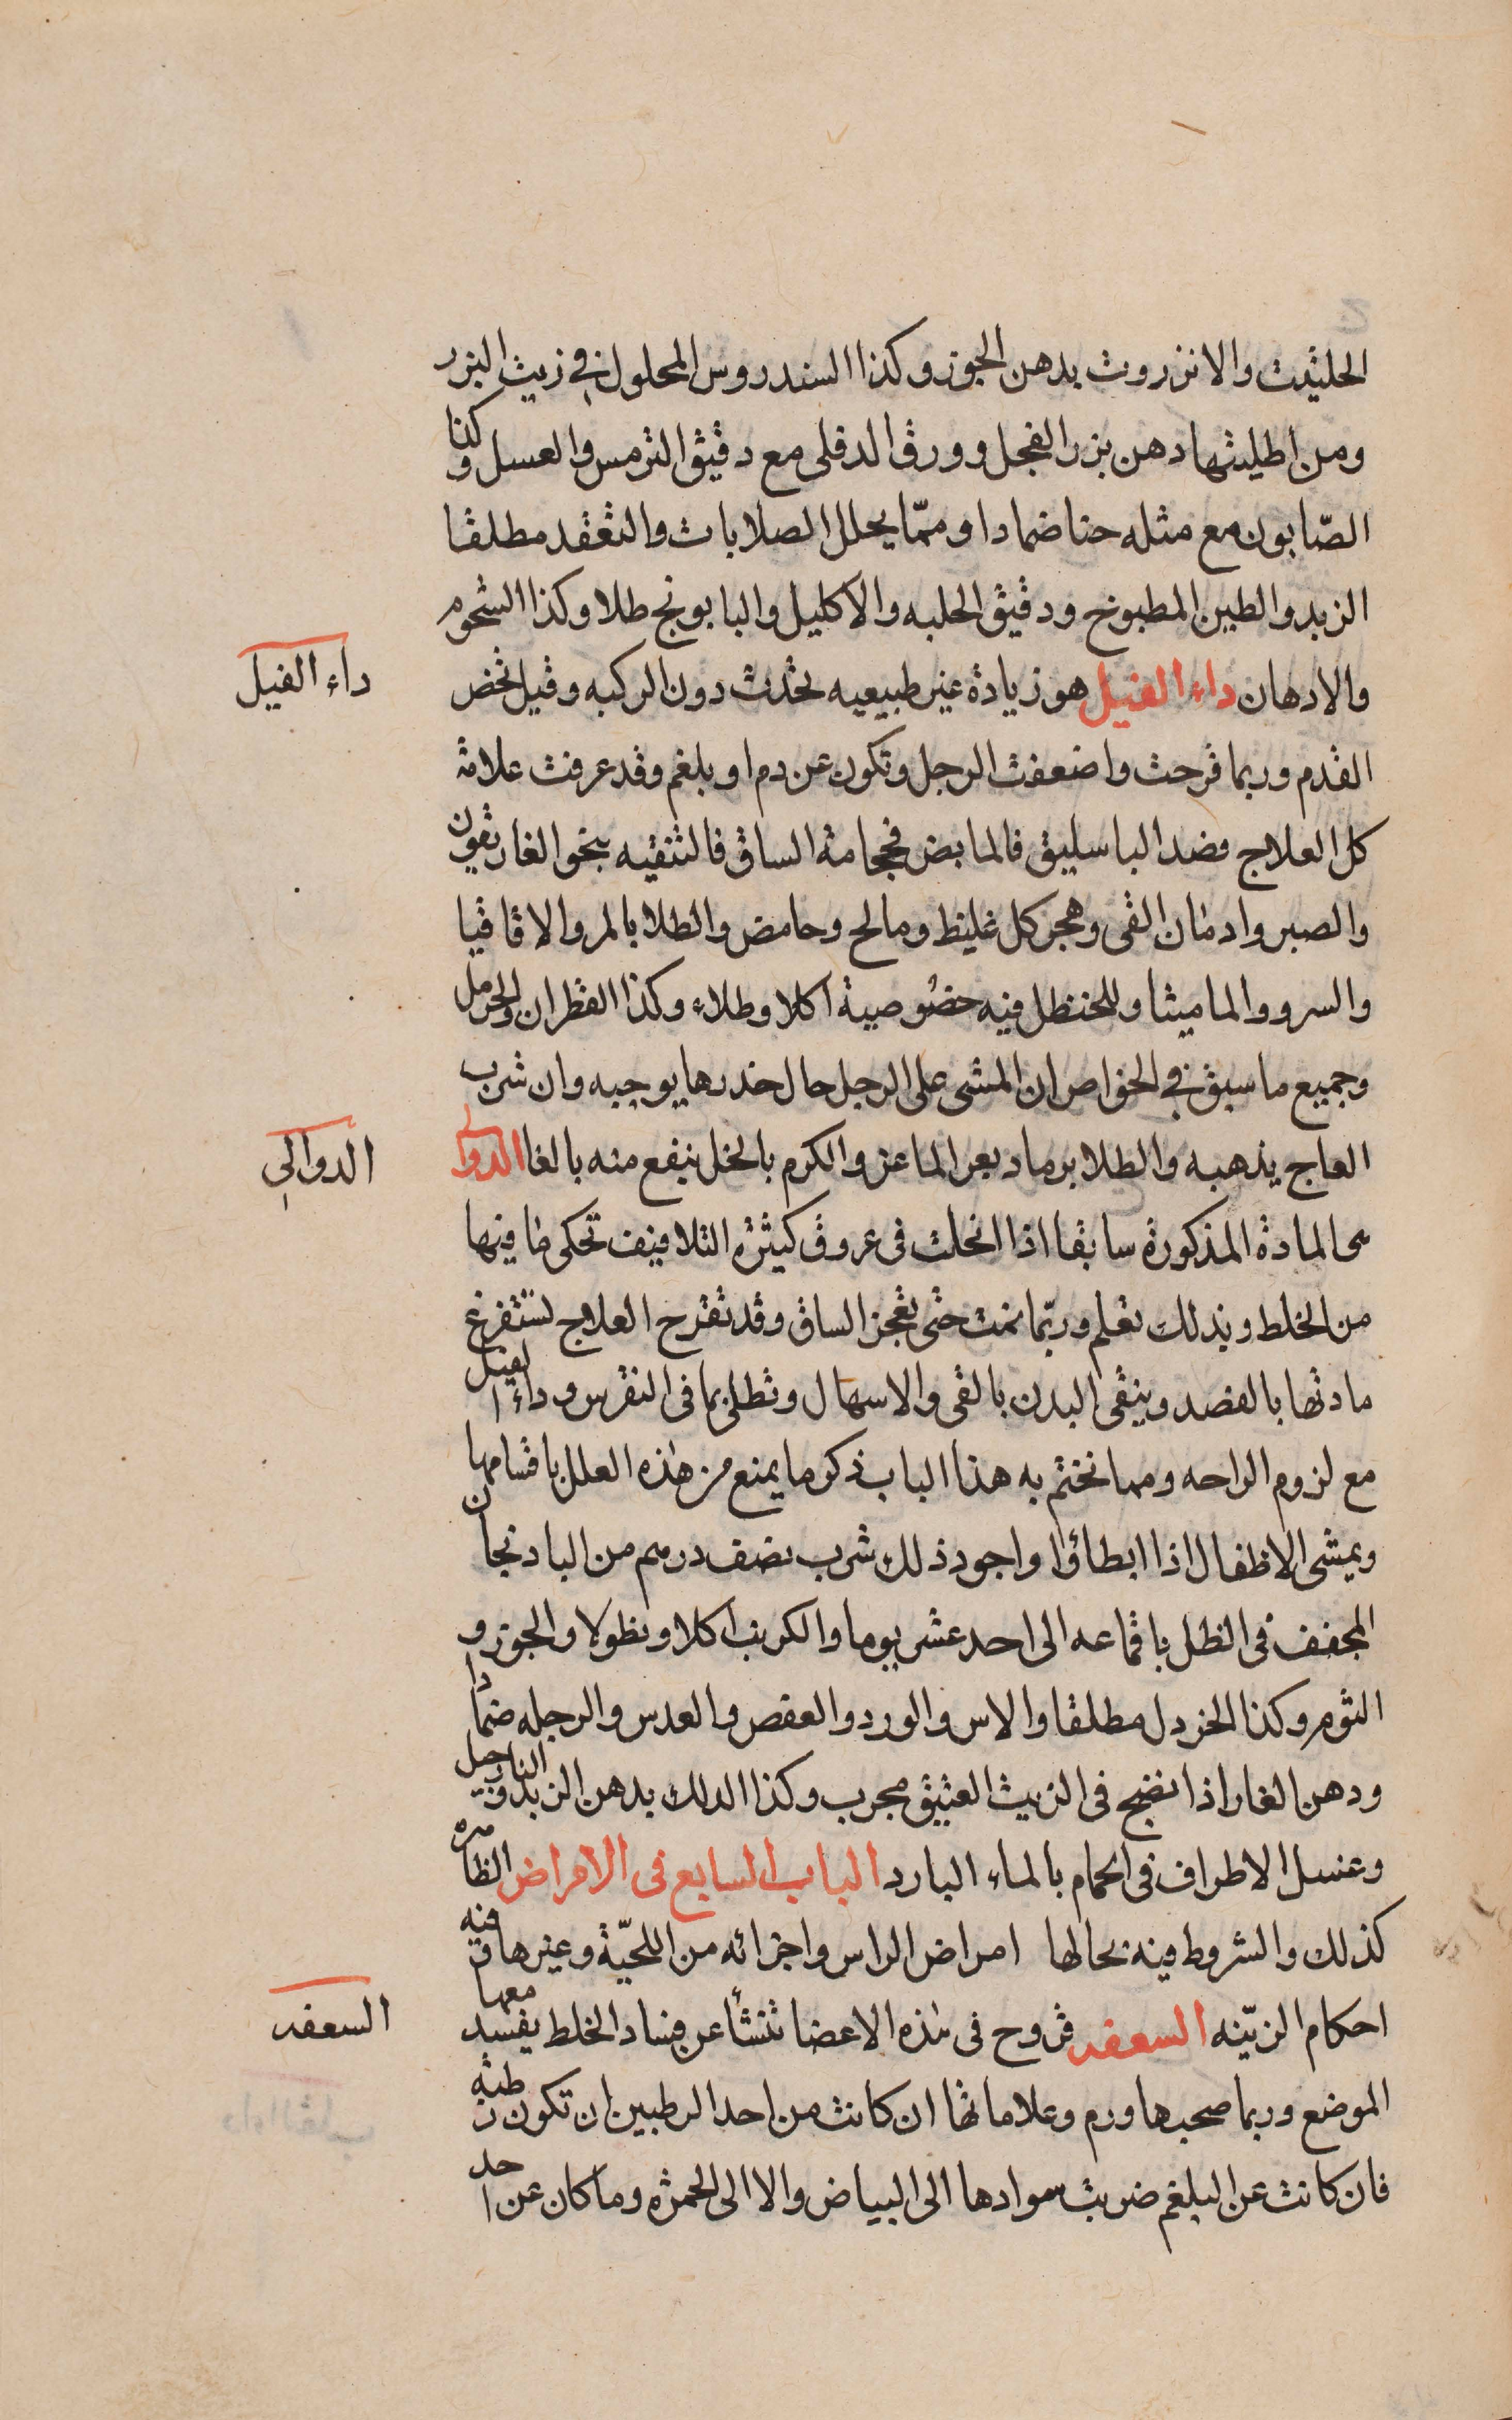 الحلتيت والانزروت بدهن الجوز وكذا السندروس المحلول في زيت البزر
ومن اطليتها دهن بزر الفجل وورق الدفلى مع دقيق الترمس والعسل وكذا
الصّابون مع مثله حنا ضمادا وممّا يحلل الصلابات والتعقد مطلقا
الزبد والطين المطبوخ ودقيق الحلبه والاكليل والبابونج طلا وكذا الشحوم
والادهان داء الفيل هو زيادة غير طبيعيه تحدث دون الركبه وقيل تخص
داء الفيل
القدم وربما قرحت واضعفت الرجل وتكون عن دم او بلغم وقد عرفت علامة
كل العلاج فصد الباسليق فالمابض فحجامة الساق فالتنقيه بنحو الغاريقون
والصبر وادمان القى وهجر كل غليظ ومالح وحامض والطلا بالمر والاقاقيا
والسرو والماميثا وللحنظل فيه خصوصية اكلا وطلاء وكذا القطران والحرمل
وجميع ما سبق في الخواص ان المشى على الرجل حال خدرها يوجبه وان شرب
العاج يذهبه والطلا برماد بعر الماعز والكرم بالخل ينفع منه بالغا الدوالي
الدوالي
هى المادة المذكورة سابقا اذا انحلت فى عروق كثيرة التلافيف تحكى ما فيها
من الخلط وبذلك تعلم وربّما نمت حتى تعجز الساق وقد تقرح العلاج تستفرغ
مادتها بالفصد وينقى البدن بالقى والاسهال وتطلى بما فى النقرس وداء الفيل
مع لزوم الراحه ومما نختم به هذا الباب ذكر ما يمنع من هذه العلل باقسامها
ويمشى الاطفال اذا ابطاؤا واجود ذلك شرب نصف درهم من الباد نجان
المجفف فى الظل باقماعه الى احد عشر يوما والكرنب اكلا ونطولا والجوز و
الثوم وكذا الخردل مطلقا والاس والورد والعفص والعدس والرجله ضمادا
ودهن الغار اذا نضج فى الزيت العتيق مجرب وكذا الدلك بدهن الزبد وزيت النارجيل
وغسل الاطراف فى الحمام بالماء البارد الباب السابع فى الامراض الظاهره
كذلك والشروط فيه بحالها امراض الراس واجزائه من اللحيّة وغيرها وفيه
احكام الزيّنه السعفه قروح فى هذه الاعضا تنشأ عن فساد الخلط يفسد معها
السعفه
الموضع وربما صحبها ورم وعلاماتها ان كانت من احد الرطبين ان تكون رطبة
فان كانت عن البلغم ضربت سوادها الى البياض والا الى الحمرة وما كان عن احد